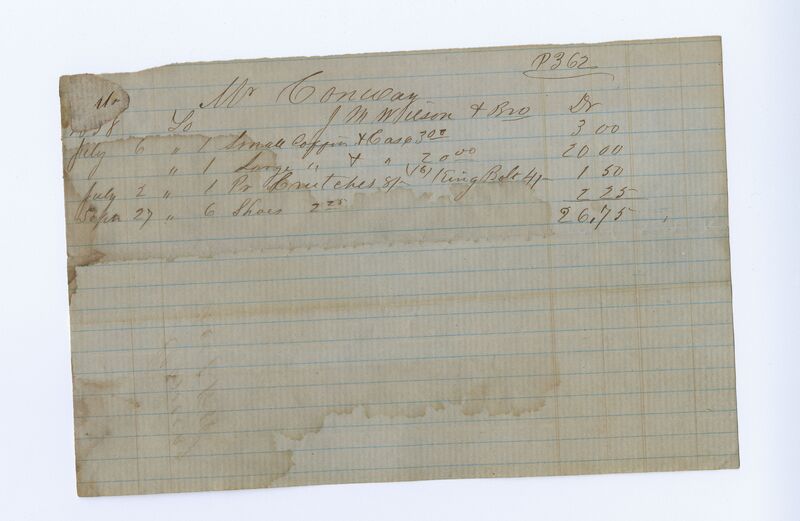 P362
Mr Conway
To J M Wilson & Bro Dr
July 6 " 1 Small Coffin & Case 3.00 3 00
" 1 Large " & " 20 00 20 00
July 2 " 1 Pr Crutches 8/- (8) 1 King Bolt 4/- 1 50
27 " 6 Shoes 2 25 2 25
26,75